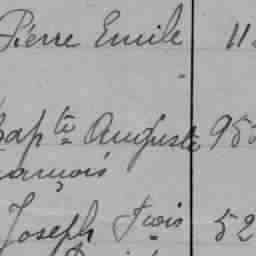 Pierre Emile 11
Bapte Auguste 95
ançois
Joseph Fçois 52